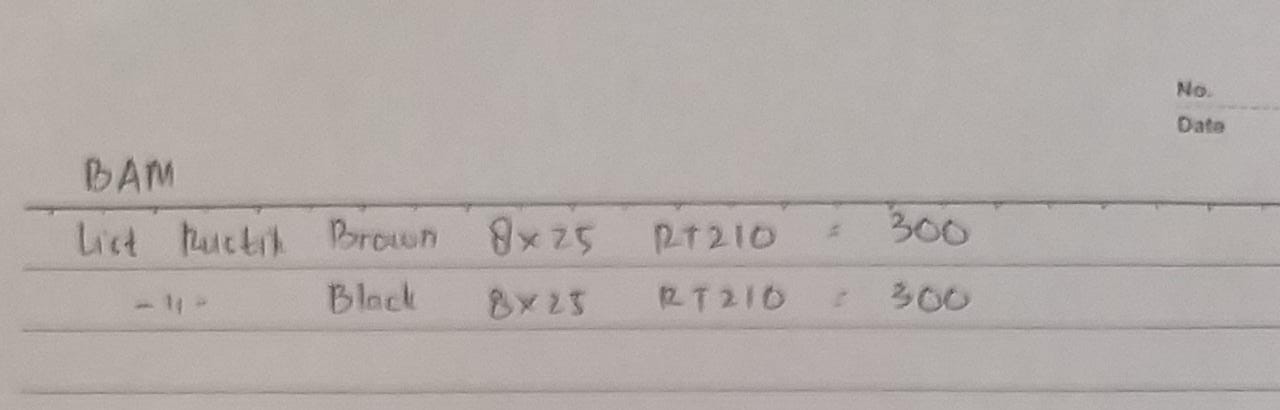 No.
Date
BAM
List Rustik Brown 8x25 RT210 = 300
-"- Black 8x25 RT210 = 300